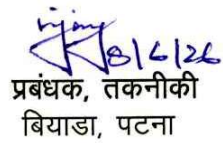 8/6/26
प्रबंधक, तकनीकी
बियाडा, पटना